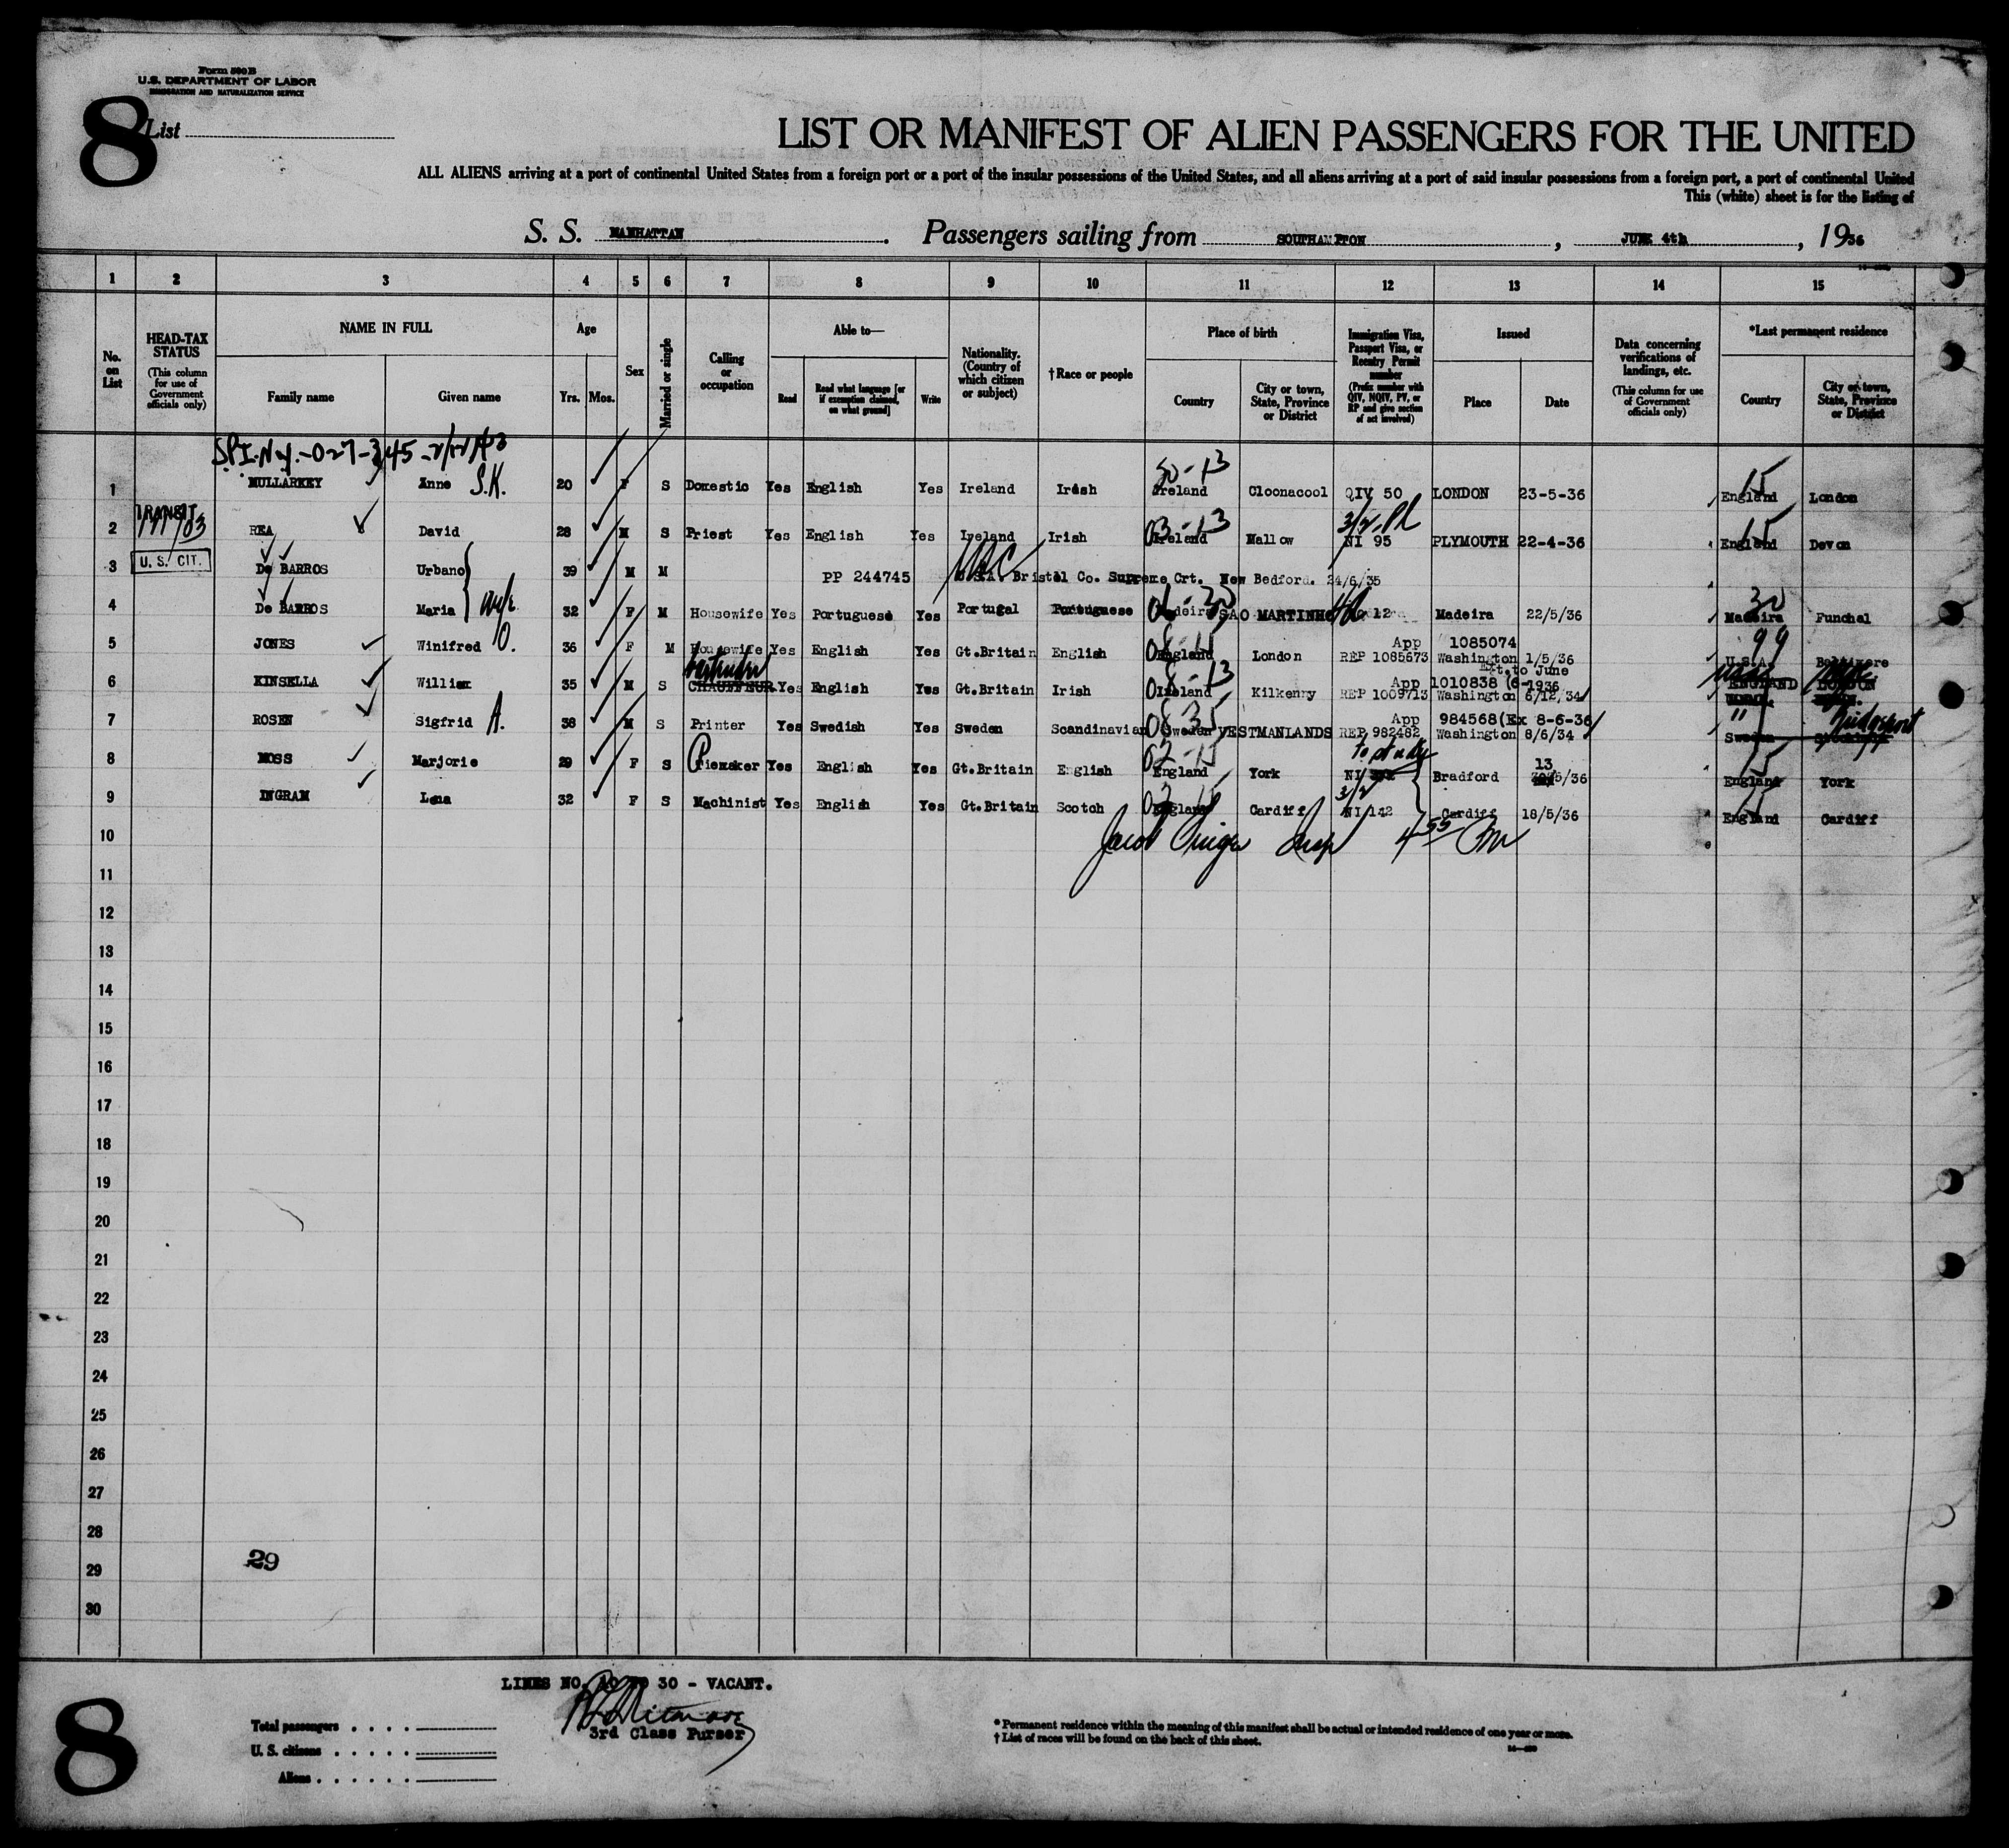 Form 500 B
U.S. DEPARTMENT OF LABOR
IMMIGRATION AND NATURALIZATION SERVICE
8
List
LIST OR MANIFEST OF ALIEN PASSENGERS FOR THE UNITED
ALL ALIENS arriving at a port of continental United States from a foreign port or a port of the insular possessions of the United States, and all aliens arriving at a port of said insular possessions from a foreign port, a port of continental United
This (white) sheet is for the listing of
S. S. MANHATTAN. Passengers sailing from SOUTHAMPTON, JUNE 4th, 1936
1 2 3 4 5 6 7 8 9 10 11 12 13 14 15
No. on List
HEAD-TAX STATUS (This column for use of Government officials only)
NAME IN FULL
Family name Given name
Age
Yrs. Mos.
Sex
Married or single
Calling or occupation
Able to—
Read Read what language [or if exemption claimed, on what ground] Write
Nationality. (Country of which citizen or subject)
†Race or people
Place of birth
Country City or town, State, Province or District
Immigration Visa, Passport Visa, or Reentry Permit number (Prefix number with QIV, NQIV, PV, or RP and give section of act involved)
Issued
Place Date
Data concerning verifications of landings, etc. (This column for use of Government officials only)
*Last permanent residence
Country City or town, State, Province or District
1 MULLARKEY Anne S.K. 20 F S Domestic Yes English Yes Ireland Irish Ireland Cloonacool QIV 50 LONDON 23-5-36 England London
50-13 15
TRANSIT
2 REA David 28 M S Priest Yes English Yes Ireland Irish Ireland Mallow NI 95 PLYMOUTH 22-4-36 England Devon
03-13 3/2 15
U. S. CIT.
3 De BARROS Urbano 39 M M PP 244745 U.S.A. Bristol Co. Supreme Crt. New Bedford. 24/6/35
4 De BARROS Maria wife 32 F M Housewife Yes Portuguese Yes Portugal Portuguese Madeira SAO MARTINHO 12 Madeira 22/5/36 Madeira Funchal
30
5 JONES Winifred O. 36 F M Housewife Yes English Yes Gt.Britain English England London App 1085074
REP 1085673 Washington 1/5/36 U.S.A. Baltimore
99
Ext. to June
6 KINSELLA William 35 M S CHAUFFEUR Yes English Yes Gt.Britain Irish Ireland Kilkenny App 1010838 (6-1936
REP 1009713 Washington 6/12/34 ENGLAND LONDON
08-13
7 ROSEN Sigfrid A. 38 M S Printer Yes Swedish Yes Sweden Scandinavian Sweden VESTMANLANDS App 984568(Ex 8-6-36
REP 982482 Washington 8/6/34 Sweden
08-35
8 MOSS Marjorie 29 F S Yes English Yes Gt.Britain English England York NI Bradford 13/5/36 England York
02-15 15
9 INGRAM Lena 32 F S Machinist Yes English Yes Gt.Britain Scotch England Cardiff NI 142 Cardiff 18/5/36 England Cardiff
3/2 15
10
11
12
13
14
15
16
17
18
19
20
21
22
23
24
25
26
27
28
29
29
30
LINES NO. 10 TO 30 - VACANT.
3rd Class Purser
8
Total passengers
U. S. citizens
Aliens
* Permanent residence within the meaning of this manifest shall be actual or intended residence of one year or more.
† List of races will be found on the back of this sheet.